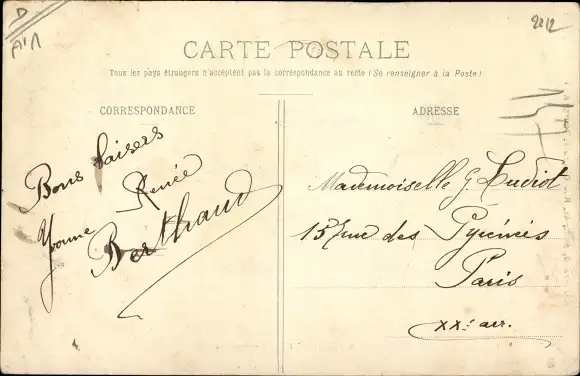 D
A'1
2212
CARTE POSTALE
Tous les pays étrangers n'acceptent pas la correspondance au recto (Se renseigner à la Poste)
CORRESPONDANCE
ADRESSE
Bons baisers
Yvonne Renée
Berthaud
Mademoiselle G. Ludiot
15 rue des Pyrénées
Paris
XXe arr.